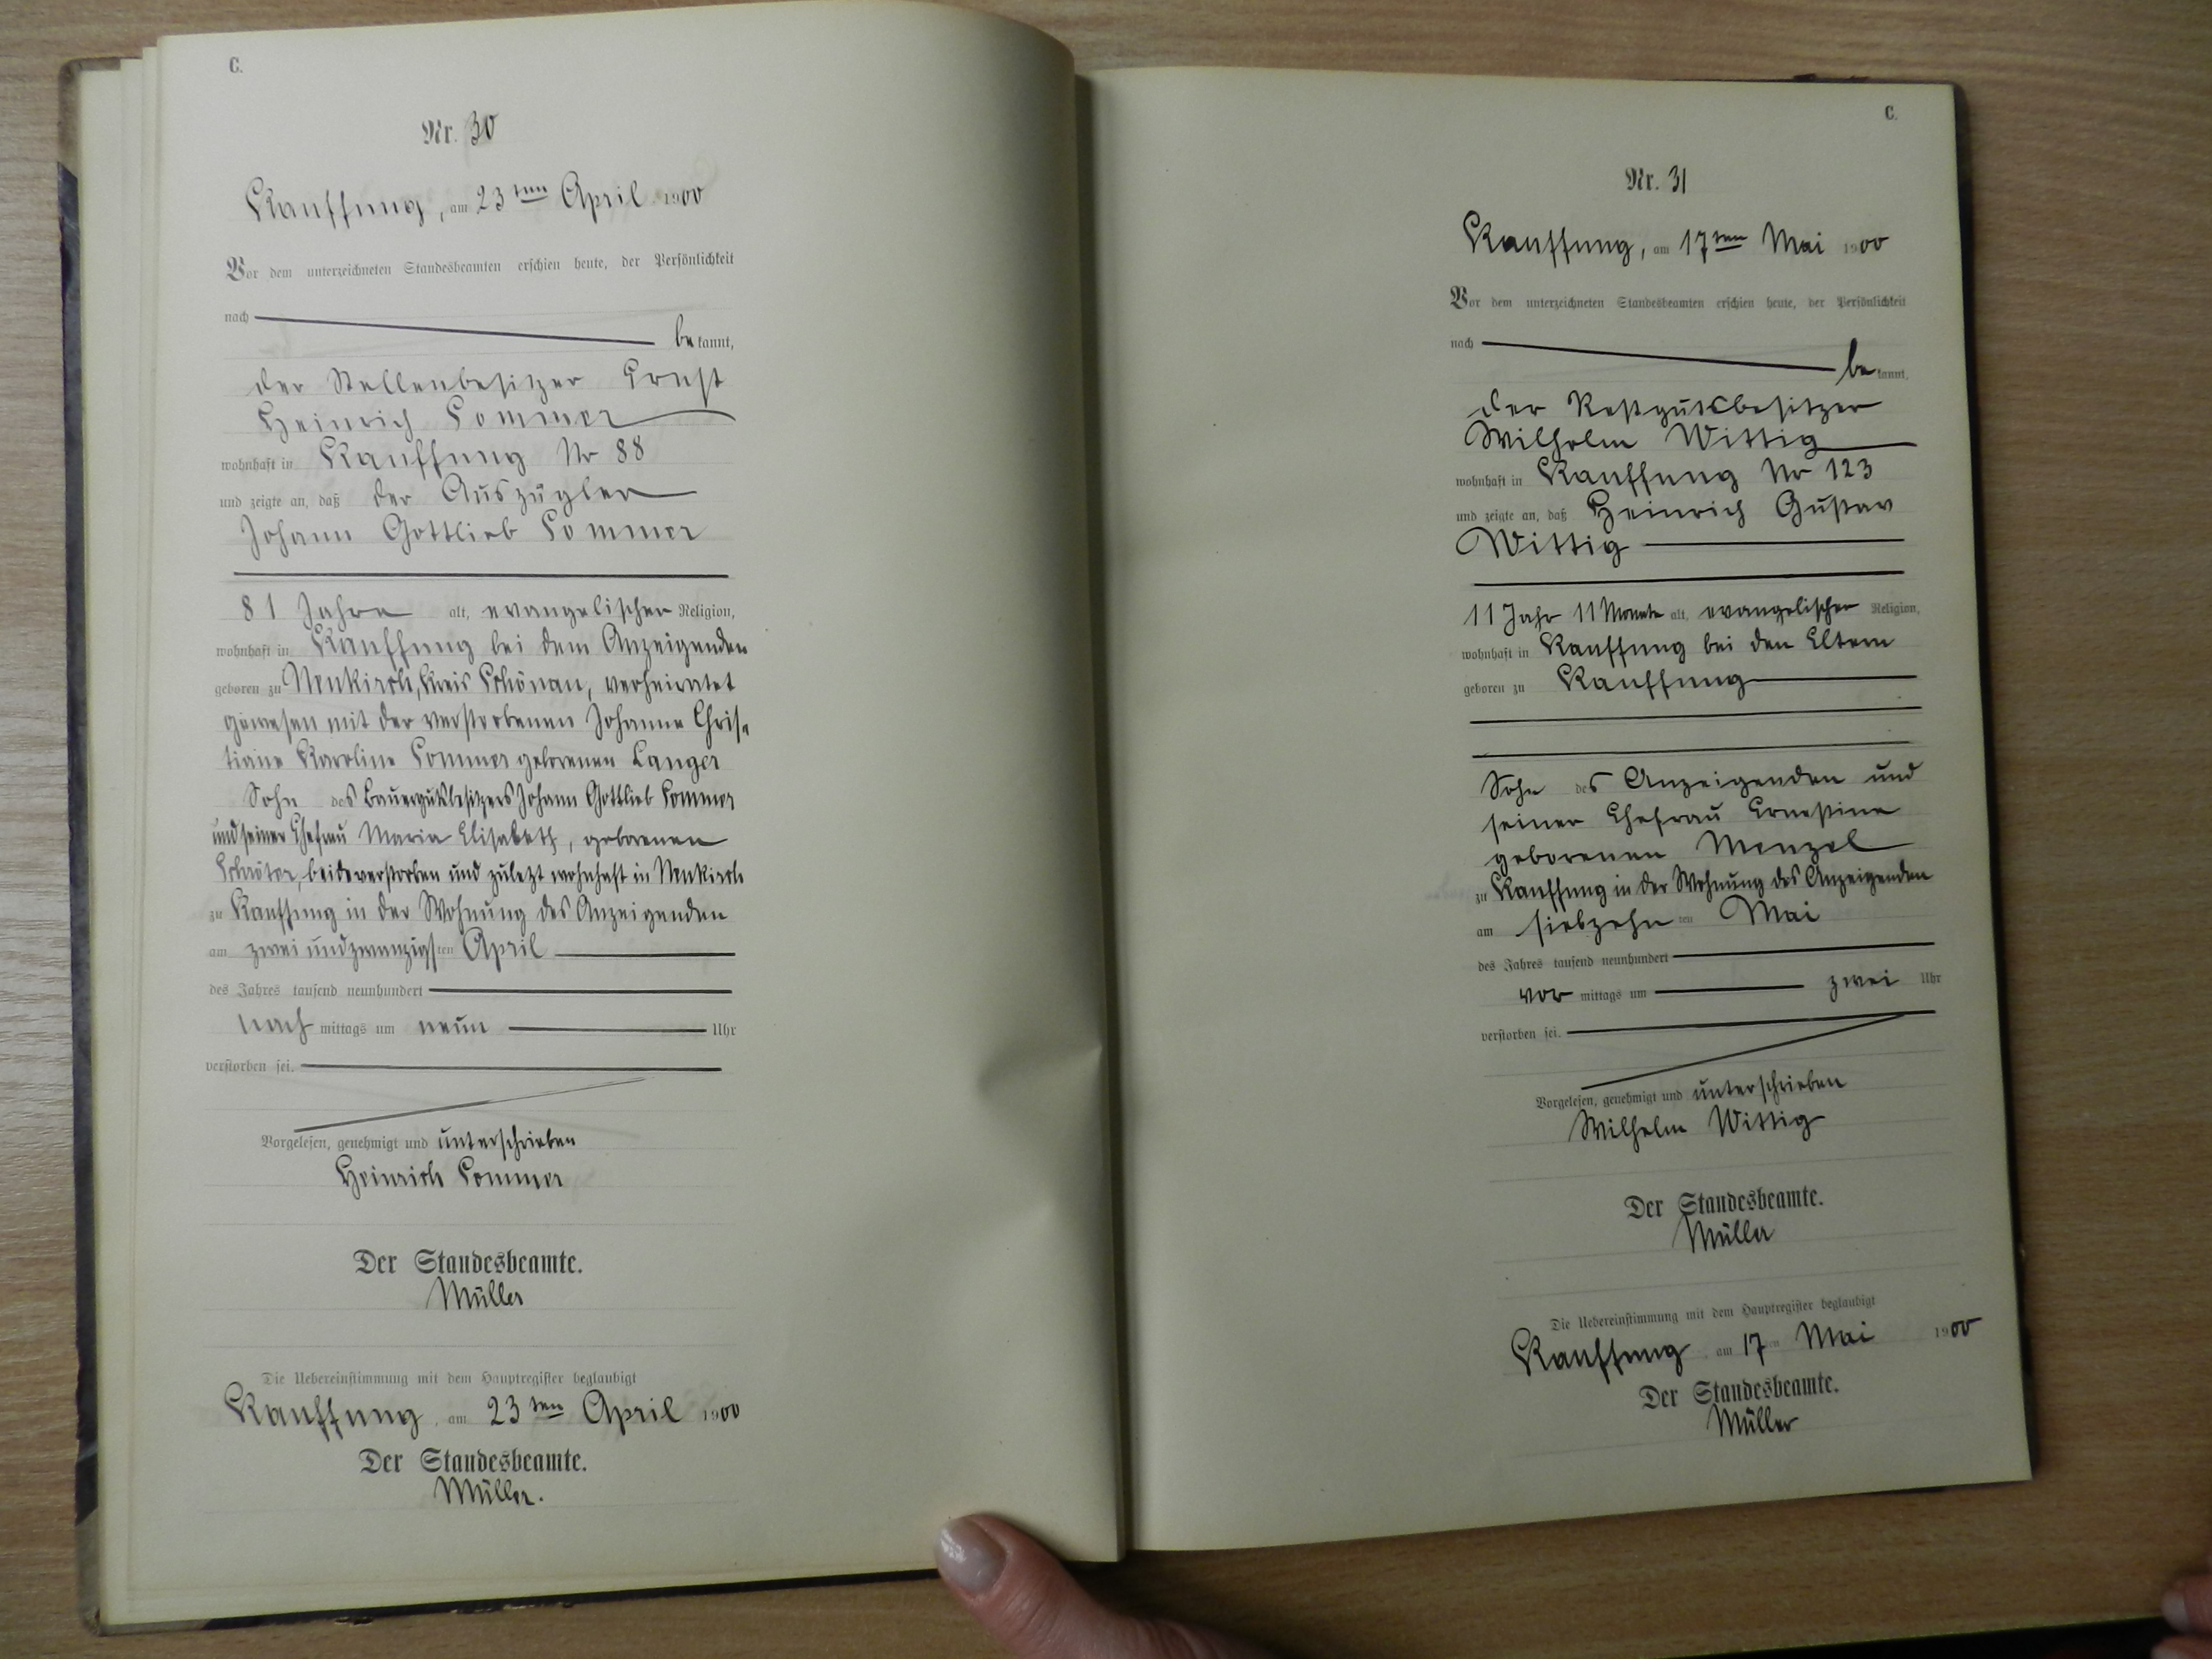 C.
Nr. 30
Kauffung, am 23ten April 1900
Vor dem unterzeichneten Standesbeamten erschien heute, der Persönlichkeit
nach
be kannt,
der Stellenbesitzer Ernst
Heinrich Sommer
wohnhaft in Kauffung Nr 88
und zeigte an, daß der Auszügler
Johann Gottlieb Sommer
81 Jahre alt, evangelischer Religion,
wohnhaft in Kauffung bei dem Anzeigenden
geboren zu Neukirch, Kreis Schönau, verheiratet
gewesen mit der verstorbenen Johanne Chris-
tiane Karoline Sommer geborenen Langer
Sohn des Bauergutsbesitzers Johann Gottlieb Sommer
und seiner Ehefrau Maria Elisabeth, geborenen
Schröter, beide verstorben und zuletzt wohnhaft in Neukirch
zu Kauffung in der Wohnung des Anzeigenden
am zweiundzwanzigsten April
des Jahres tausend neunhundert
nach mittags um neun Uhr
verstorben sei.
Vorgelesen, genehmigt und unterschrieben
Heinrich Sommer
Der Standesbeamte.
Müller
Die Uebereinstimmung mit dem Hauptregister beglaubigt
Kauffung, am 23ten April 1900
Der Standesbeamte.
Müller.
C.
Nr. 31
Kauffung, am 17ten Mai 1900
Vor dem unterzeichneten Standesbeamten erschien heute, der Persönlichkeit
nach
be kannt,
der Restgutsbesitzer
Wilhelm Wittig
wohnhaft in Kauffung Nr 123
und zeigte an, daß Heinrich Gustav
Wittig
11 Jahr 11 Monate alt, evangelischer Religion,
wohnhaft in Kauffung bei den Eltern
geboren zu Kauffung
Sohn des Anzeigenden und
seiner Ehefrau Ernestine
geborenen Menzel
zu Kauffung in der Wohnung des Anzeigenden
am siebzehnten Mai
des Jahres tausend neunhundert
vor mittags um zwei Uhr
verstorben sei.
Vorgelesen, genehmigt und unterschrieben
Wilhelm Wittig
Der Standesbeamte.
Müller
Die Uebereinstimmung mit dem Hauptregister beglaubigt
Kauffung, am 17ten Mai 1900
Der Standesbeamte.
Müller